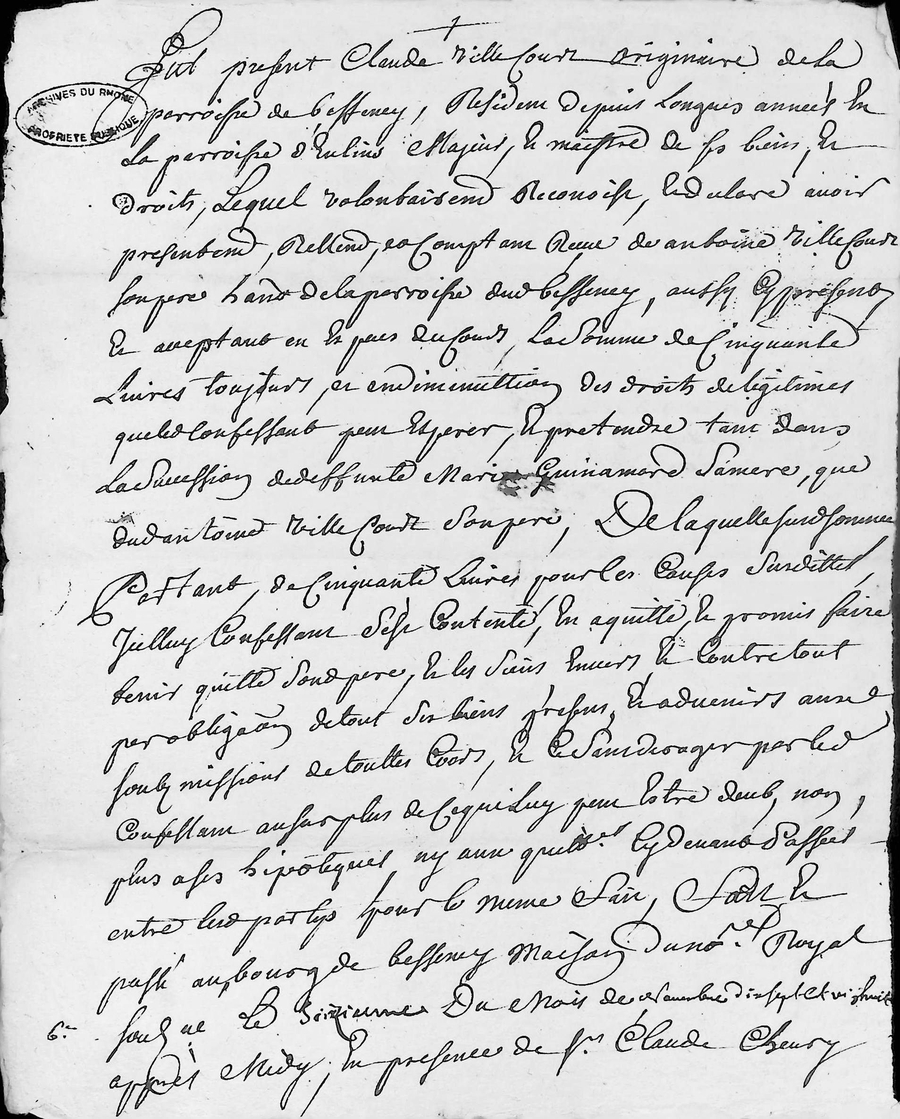 ARCHIVES DU RHONE
PROPRIETE PUBLIQUE
Fut present Claude Villecourt originaire de la
parroisse de besseney, Resident depuis Longues années En
La parroisse d'Eulins Majeur, Et maistre de ses biens, Et
droits, Lequel volontairemt Reconoist, Et declare avoir
presentemt, Rellemt, et Comptant Receu de antoine Villecourt
son pere hant de la parroisse dud bessenay, aussy Cy present
Et aceptant en Especes du Cours, La Somme de Cinquante
Livres tournois, et en diminution des droits de legitimes
que led Confessant peut Esperer, Et pretendre tant dans
La Sucession de deffunte Marie Guinamard Sa mere, que
dud antoine Ville Court Son pere, De laquelle sud somme
Partant, de Cinquante Livres pour les Causes Susdittes,
Icelluy Confessant s'est Contenté, En aquitte, Et promis faire
tenir quitte Sond pere, Et les Siens Envers Et Contre tout
par obligaon de tout Ses biens presens, Et advenirs avec
soubmissions de touttes Cours, Et Ce Sans deroger par led
Confessant au surplus de Ce qui Luy peut Estre deub, non
plus a ses hipoteques ny aux quittes Cy devant Passees
entre lesd partys pour le meme Fait, Fait Et
passé au bourg de bessenay Maison du nore Royal
soubsne Le Sixieme Du Mois de novembre dixsept Et vingthuit
6e
apprés Midy, En presence de sr Claude Cheury